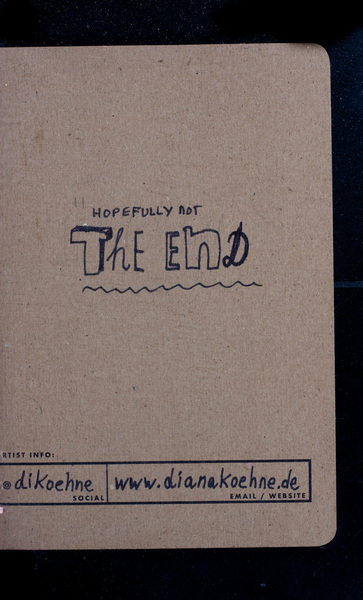 HOPEFULLY NOT
THE END
RTIST INFO:
@dikoehne
SOCIAL
www.dianakoehne.de
EMAIL / WEBSITE